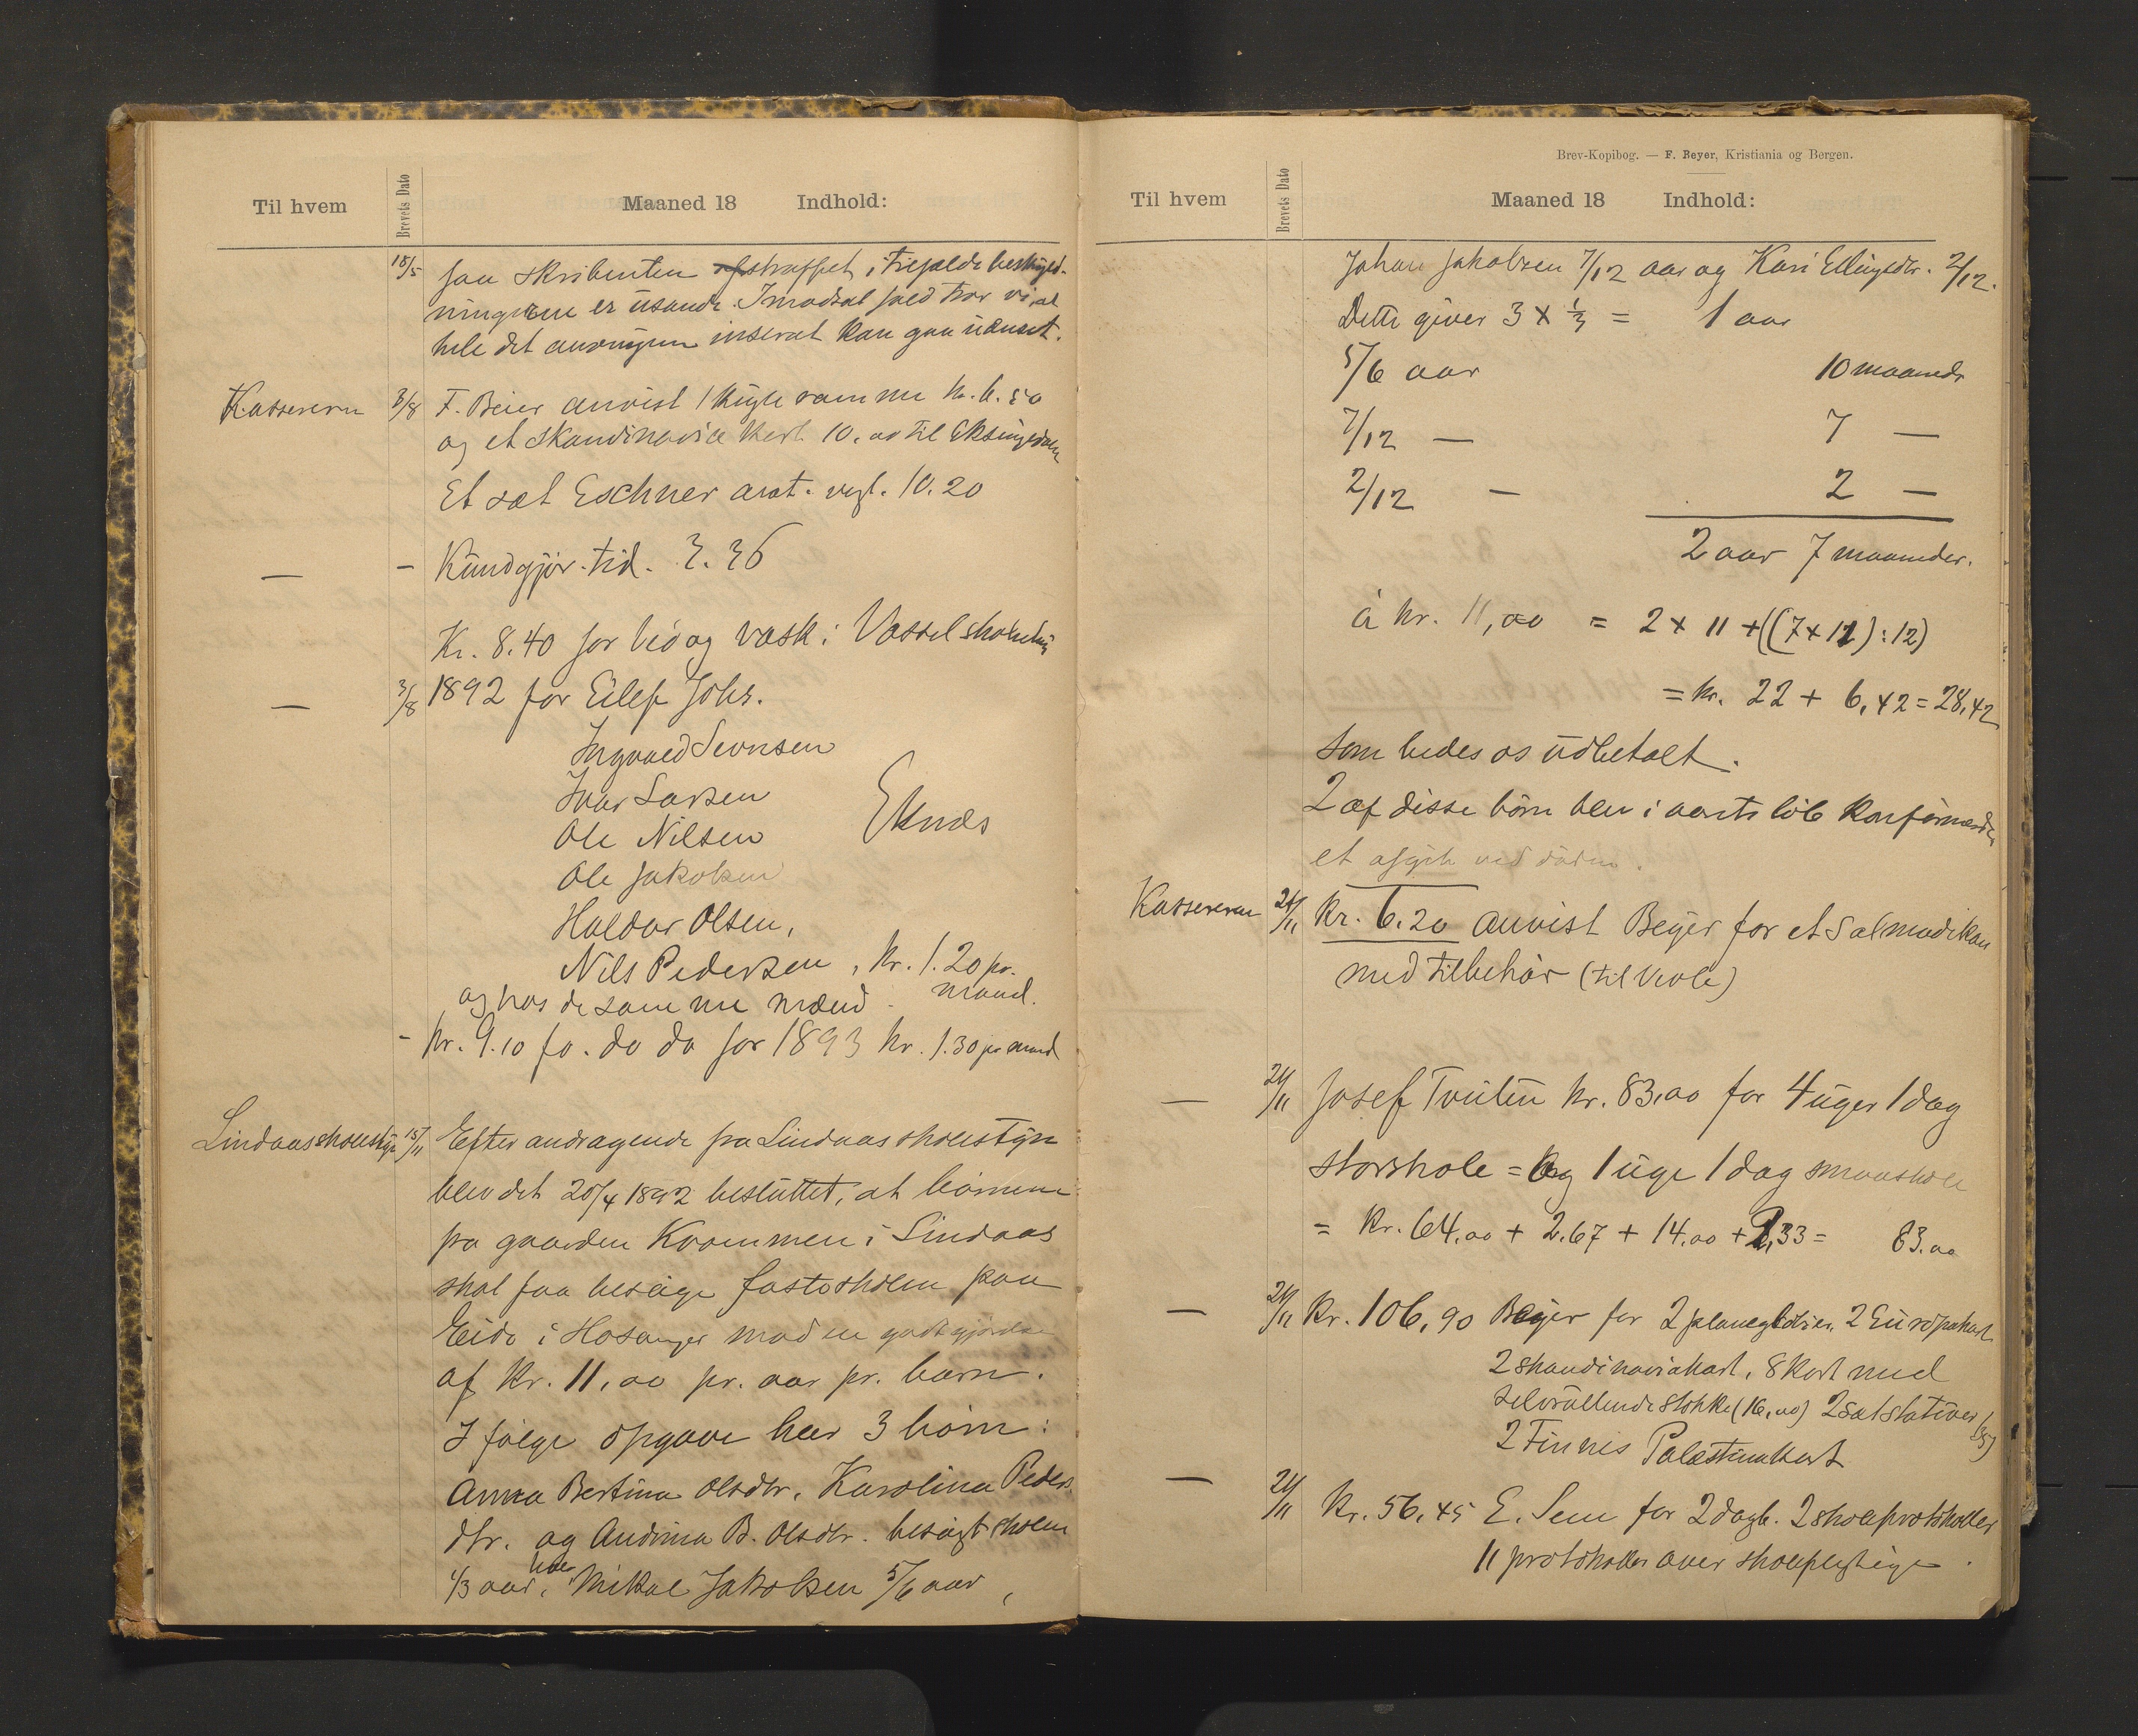 Til hvem
Brevets Dato
Maaned 18 Indhold:
18/5 faa skribenten afstraffet, i tilfælde beskyld-
ningerne er usande. I modsat fald bør vi at
hele det inserat kan gaa uænset.
Kassereren 3/8 F. Beier anvist 1 kugle ramme kr. 6.50
og et skandinavisk kart 10.00 til Eksingedalen
Et sæt Eschner anat. vegt. 10.20
— - Kundgjør. tid. 3.36
Kr. 8.40 for ved og vask i Vassel skolehus
— 3/8 1892 for Eilef Johs.
Ingvald Sevrsen
Ivar Larsen
Ole Nilsen
Eknes
Ole Jakobsen
Haldor Olsen,
Nils Pedersen, kr. 1.20 pr.
mand.
og hos de samme mænd
- kr. 9.10 fo. do do for 1893 kr. 1.30 pr mand
Lindaas skolestyr 15/11 Efter andragende fra Lindaas skolestyre
blev det 20/4 1892 besluttet, at börnene
fra gaarden Kvammen i Lindaas
skal faa besöge fastskolen paa
Eide i Hosanger mod en godtgjørelse
af kr. 11,00 pr. aar pr. barn.
I følge opgave har 3 børn:
Anna Bertina Olsdtr. Karolina Peders
dtr. og Andrina B. Olsdtr. besøgt skolen
1/3 aar, hver Mikal Jakobsen 5/6 aar,
Brev-Kopibog. — F. Beyer, Kristiania og Bergen.
Til hvem
Brevets Dato
Maaned 18 Indhold:
Johan Jakobsen 7/12 aar og Kari Ellingsdtr. 2/12.
Dette giver 3 x 1/3 = 1 aar
5/6 aar 10 maander
7/12 — 7 —
2/12 — 2 —
2 aar 7 maaneder.
à kr. 11,00 = 2 x 11 + ((7 x 11) : 12)
= kr. 22 + 6,42 = 28,42
som bedes os udbetalt.
2 af disse börn blev i aarets löb konfirmerede,
et afgik ved döden.
Kassereren 24/11 Kr. 6.20 anvist Beyer for et Salmodikon
med tilbehør (til Veole)
— 24/11 Josef Tveiten kr. 83,00 for 4 uger 1 dag
storskole = og 1 uge 1 dag smaaskole
= Kr. 64.00 + 2.67 + 14.00 + 2,33 = 83.00
— 24/11 Kr. 106,90 Beyer for 2 planeglober, 2 Europakart
2 skandinaviakart, 8 kart med
selvrullende stokke (16,00) 2 sæt stativer (35)
2 Finnes Palæstinakart
— 24/11 Kr. 56,45 E. Sem for 2 dagb. 2 skoleprotokoller
11 protokoller over skolepligtige.